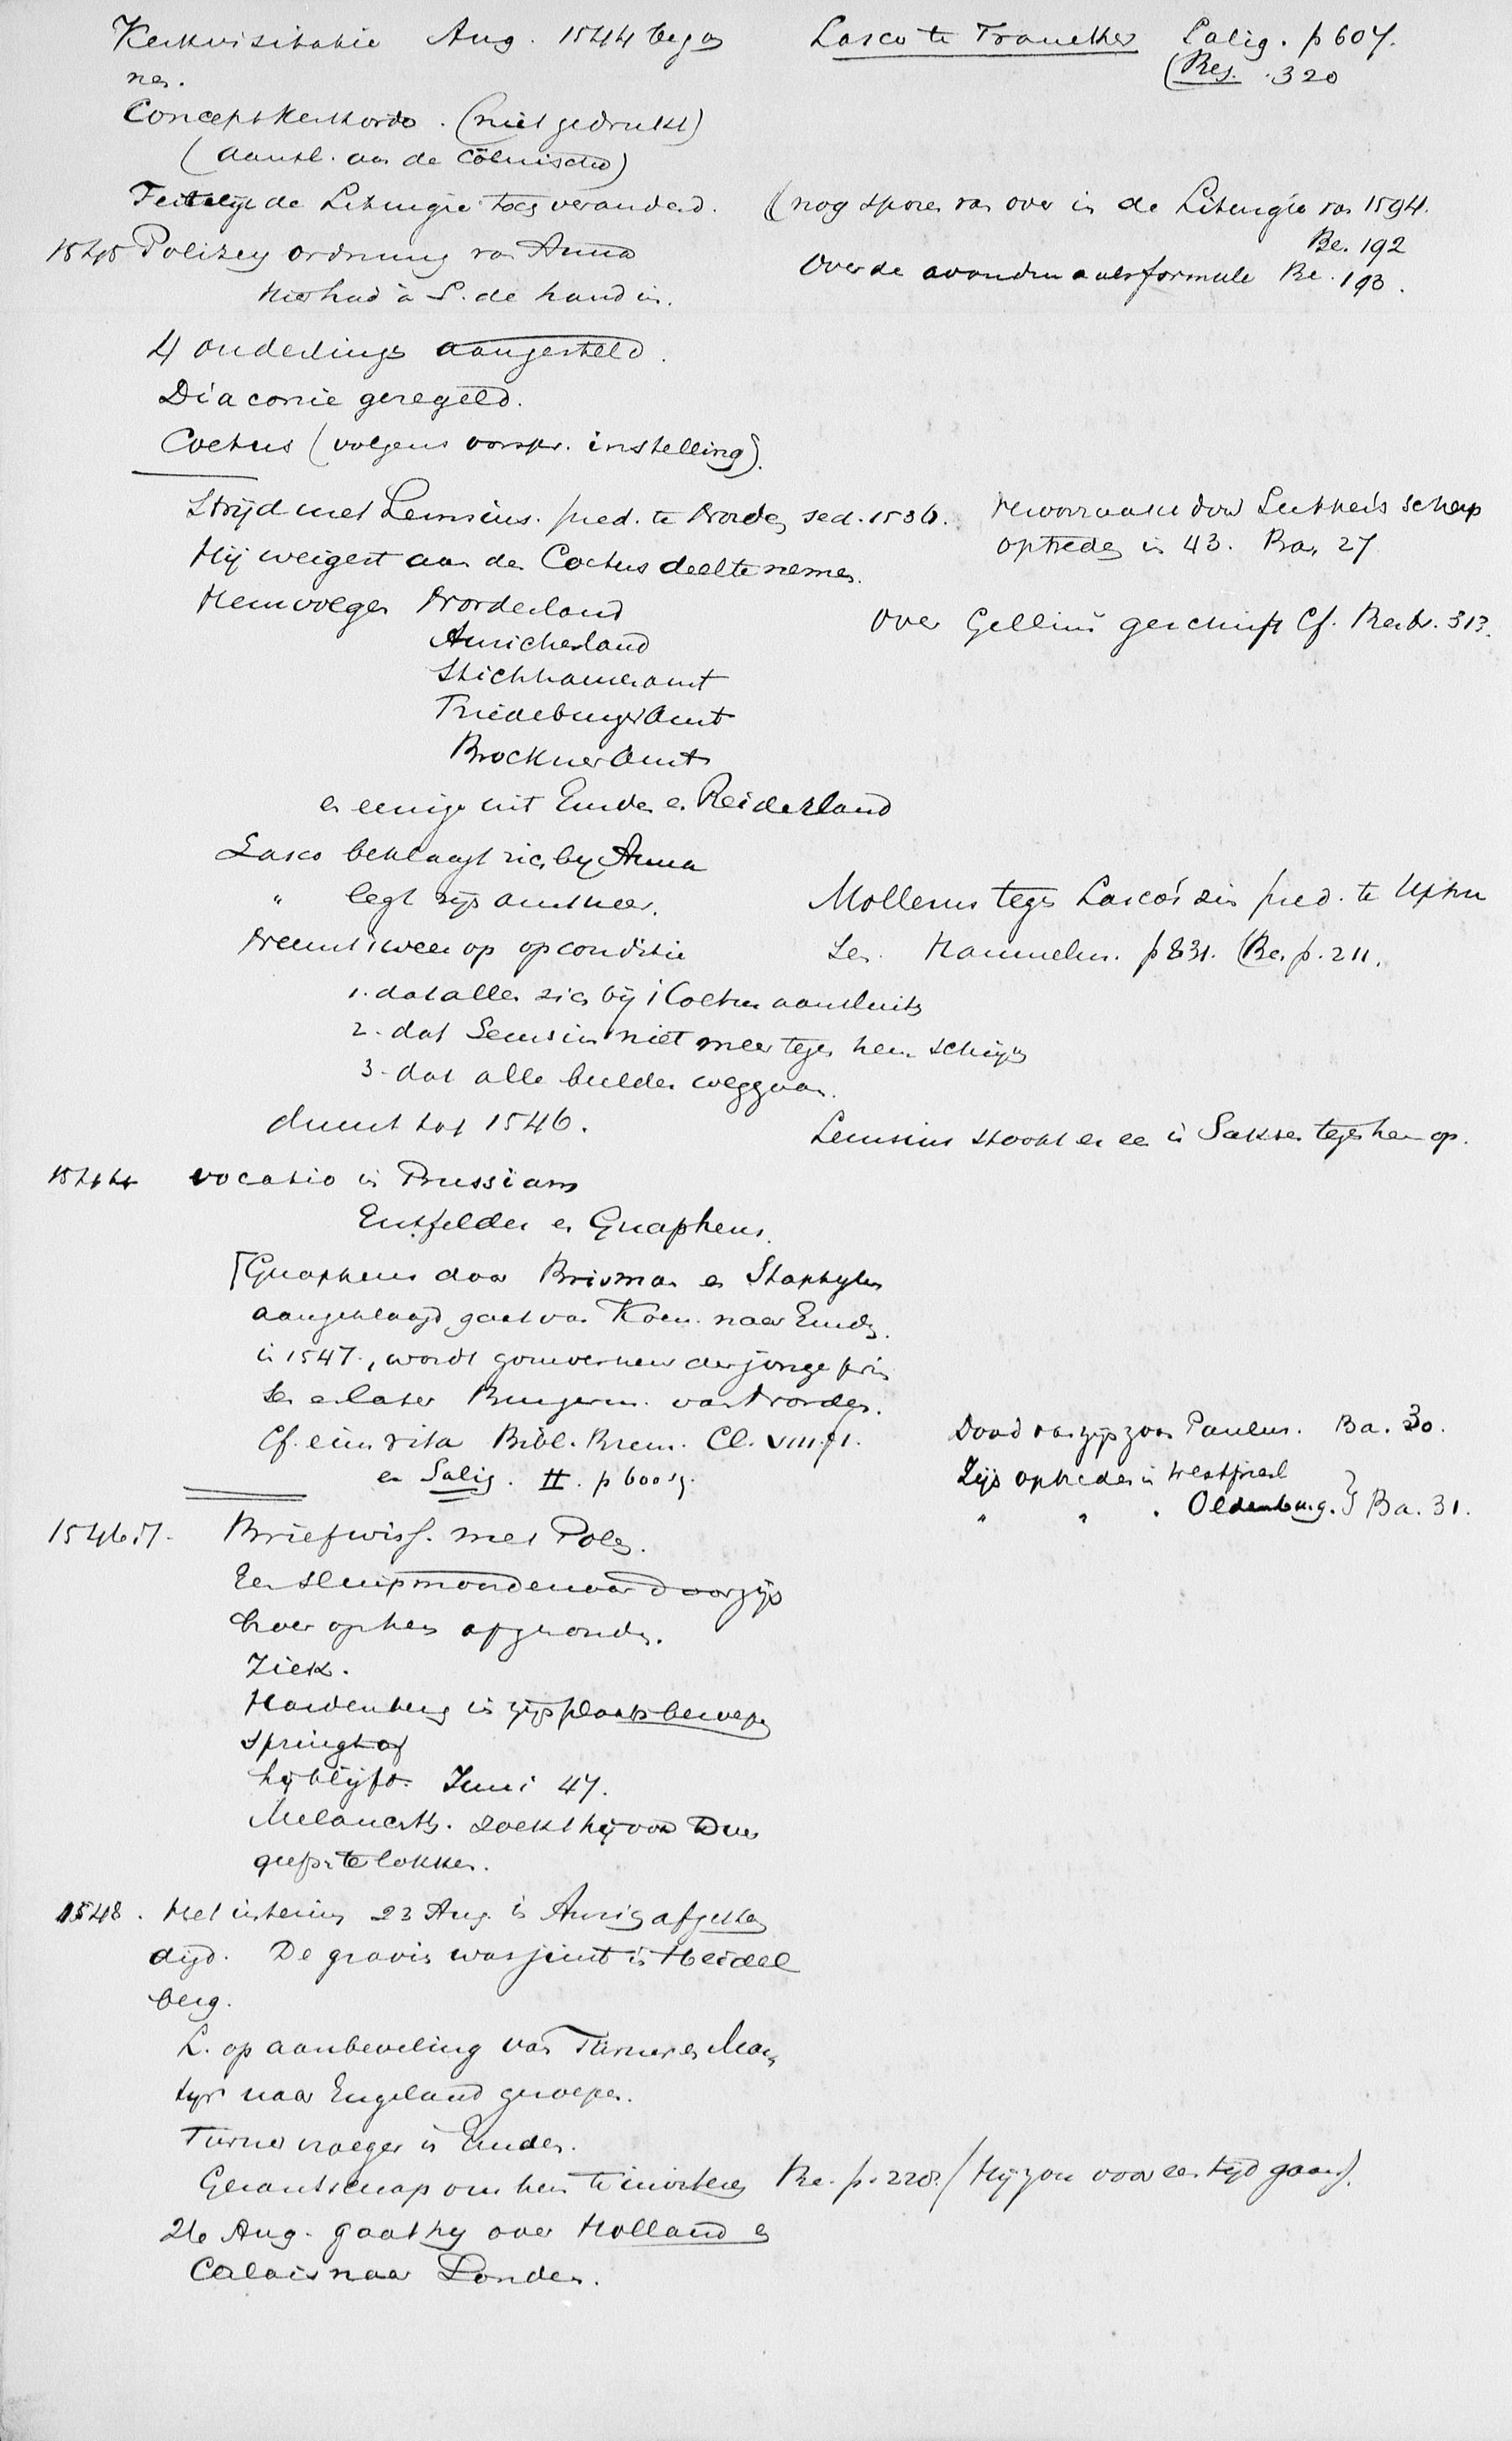 Kerkvisitatie Aug. 1544 begon
nen.
Lasco te Franeker Salig. p 607.
(Res. 320
Conceptkerkorde. (niet gedrukt)
(aansl. aan de Cölnische)
Feitelijk de Liturgie toch veranderd.
(nog sporen van over in de Liturgie van 1594.
Be. 192
1545 Polizey ordnung van Anna
Over de avondmaalsformule Be. 193.
Hier had à L. de hand in.
4 ouderlingen aangesteld.
Diaconie geregeld.
Coetus (volgens oorspr. instelling).
Strijd met Lemsius. pred. te Norden sed. 1536.
Veroorzaakt door Luther's scherp
optreden in 43. Ba. 27
Hij weigert aan den Coetus deel te nemen.
Hem volgen Norderland
Over Gellius geschrift Cf. Bertr. 313.
Auricherland
Stickhauseramt
Friedeburger Amt
Brockmer Amt
en eenige uit Emden en Reiderland
Lasco beklaagt zich bij Anna
" legt zijn ambt neer.
Mollerus tegen Lasco's zin pred. te Upha
Neemt 't weer op op conditie
sen. Hammelm. p 831. (Be. p. 211.
1. dat allen zich bij 't Coetus aansluiten
2. dat Lemsius niet meer tegen hem schrijve
3. dat alle beelden weggaan.
duurt tot 1546.
Lemsius stookt er een in Saksen tegen hem op.
1544 vocatio in Prussiam
Entfelder en Gnapheus.
[Gnapheus door Brisman en Staphylus
aangeklaagd, gaat van Koen. naar Emden.
in 1547., wordt gouverneur der jonge prin
sen en later Burgerm. van Norden.
Cf. eius vita Bibl. Brem. Cl. VIII. f 1.
en Salig. II. p 600 sq.
Dood van zijn zoon Paulus. Ba. 30.
Zijn optreden in Westfriesl
" " . Oldenburg. } Ba. 31.
1546.7. Briefwis. met Polen.
Een sluipmoordenaar door zijn
broer op hem afgezonden.
Ziek.
Hardenberg in zijn plaats beroepen
springt af
hij blijft. Juni 47.
Melancth. zoekt hij voor Dui
grep. te lokken.
1548. Het interim 23 Aug. in Aurich afgekon
digd. De gravin was juist in Heidel
berg.
L. op aanbeveling van Turner en Mar
tyr naar Engeland geroepen.
Turner vroeger in Emden.
Gezantschap om hem te inviteren Be. p. 220. (Hij zou voor een tijd gaan).
26 Aug. gaat hij over Holland en
Calais naar Londen.